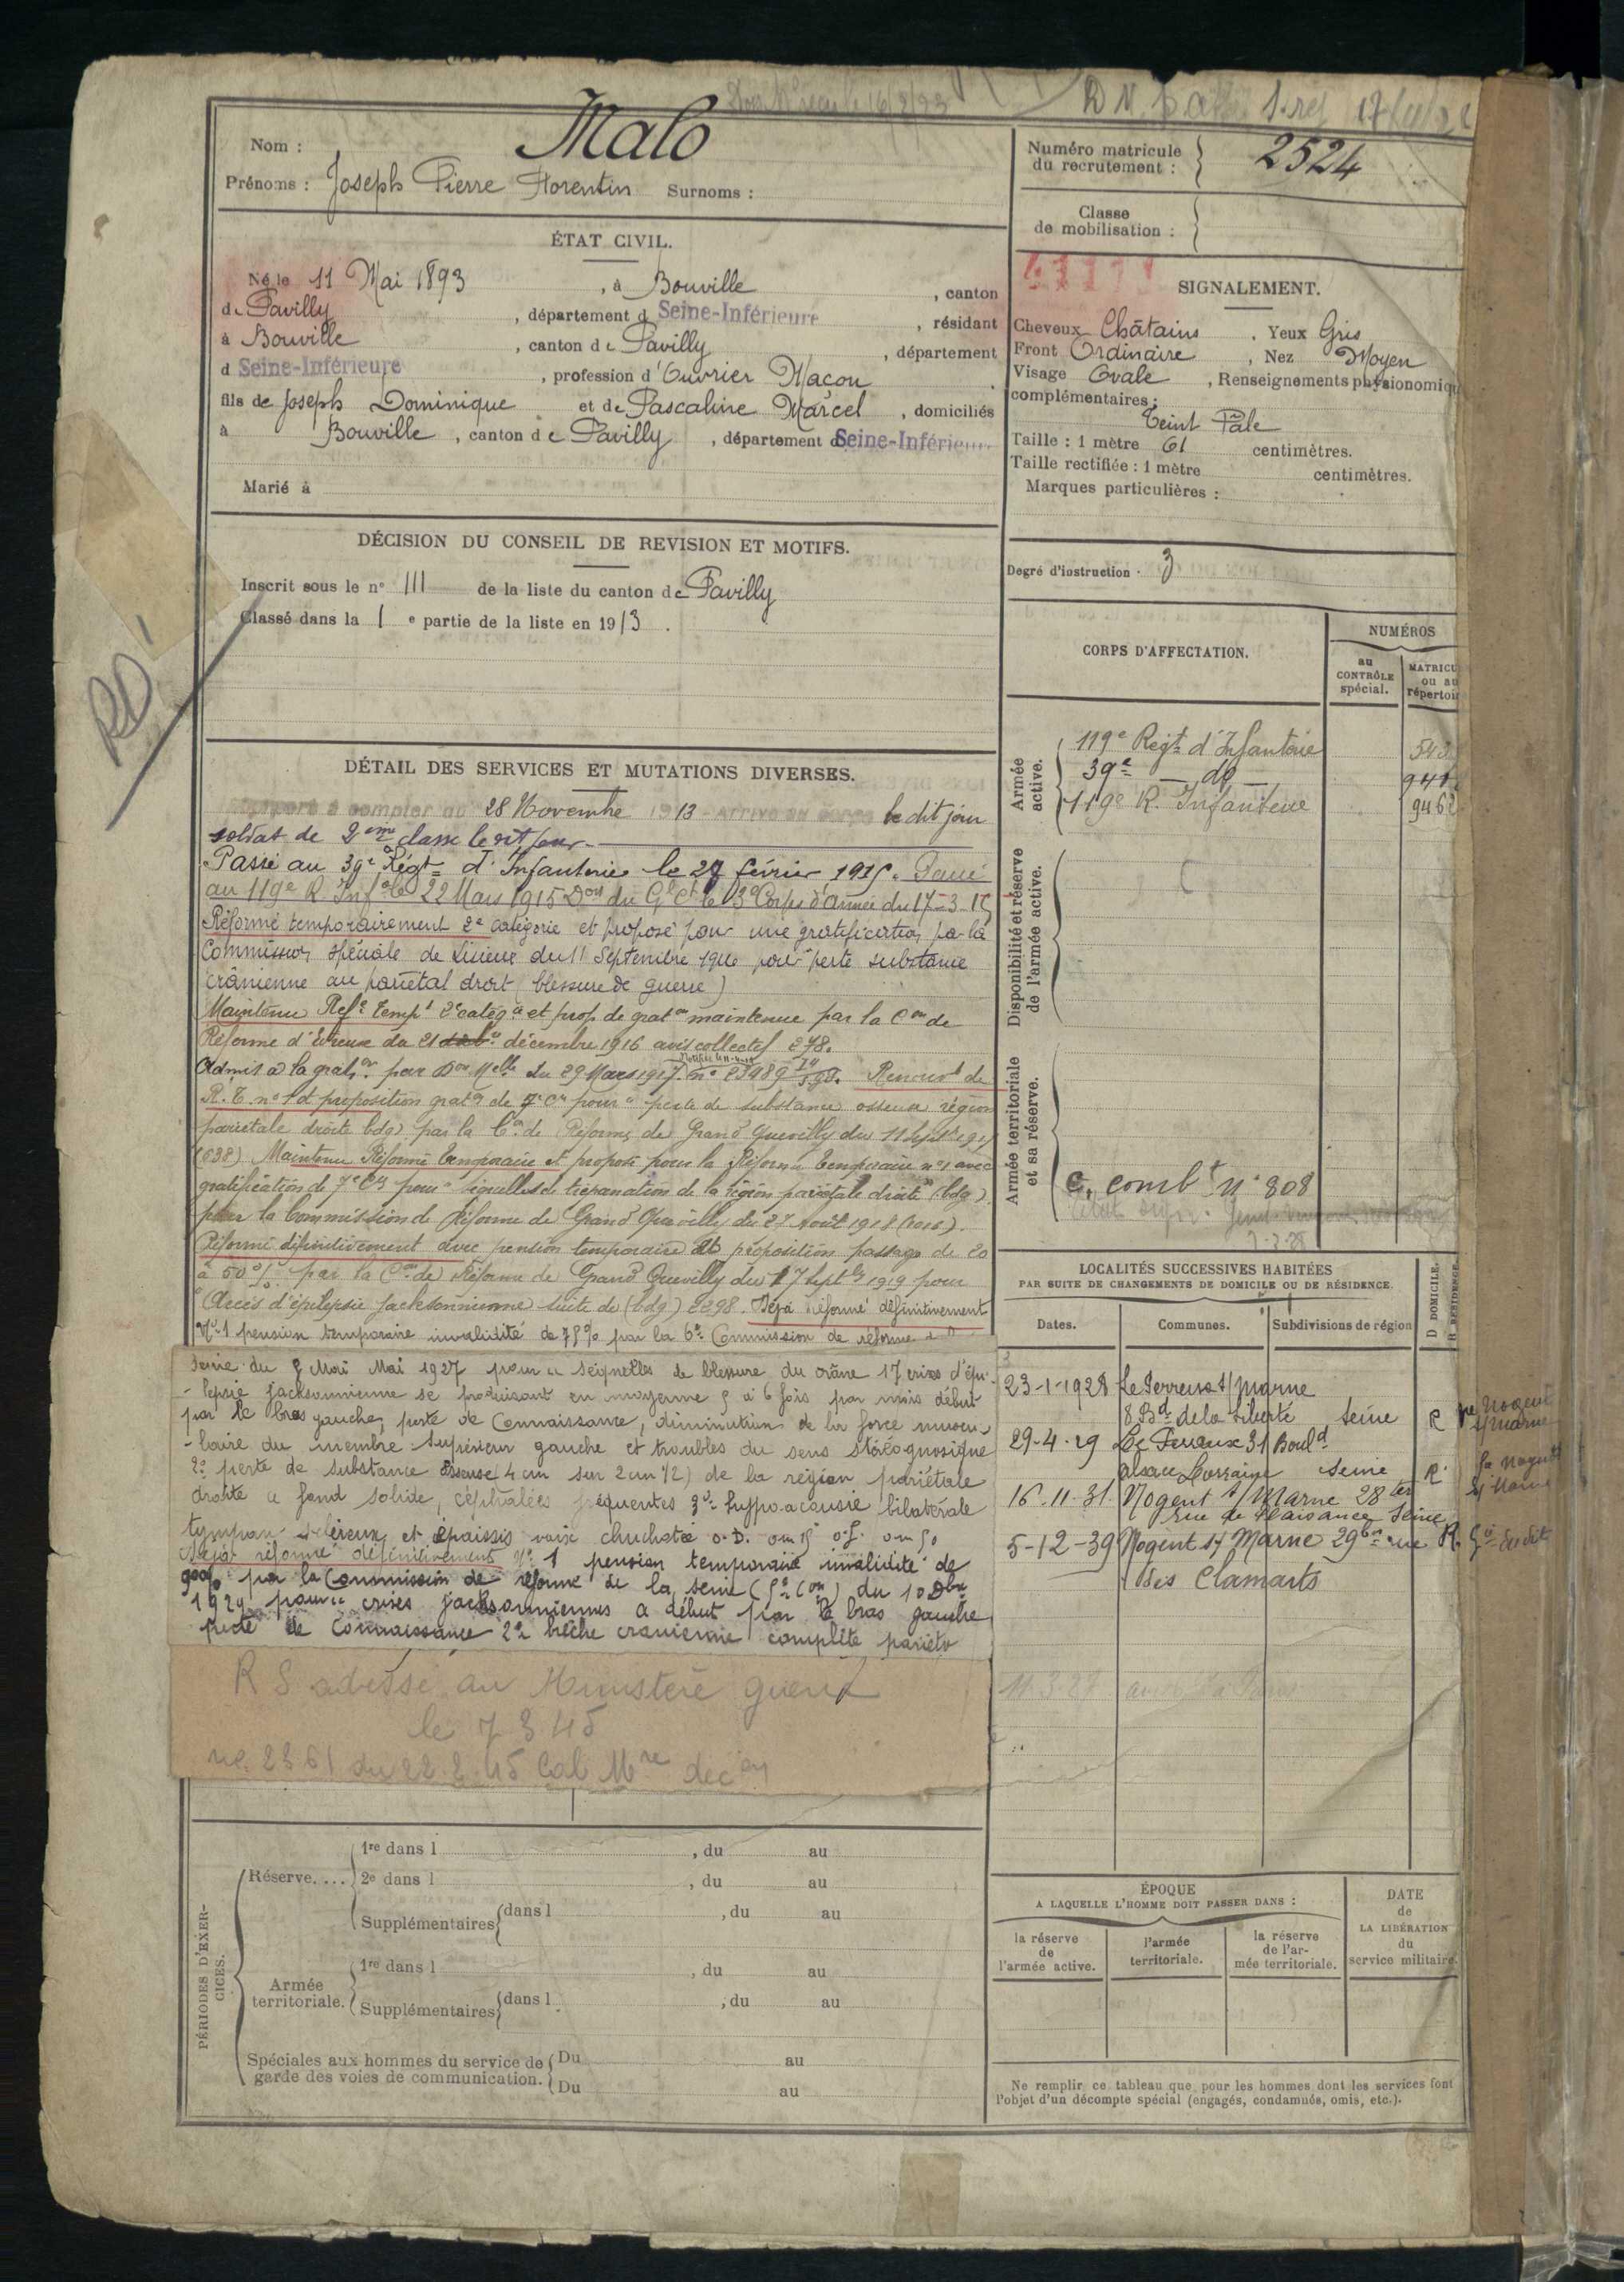 Nom : Malo
Prénoms : Joseph Pierre Florentin Surnoms :
Numéro matricule du recrutement : 2524
Classe de mobilisation :
ÉTAT CIVIL.
Né le 11 Mai 1893, à Bouville, canton
de Pavilly, département d Seine-Inférieure, résidant
à Bouville, canton de Pavilly, département
d Seine-Inférieure, profession d'Ouvrier Maçon,
fils de Joseph Dominique et de Pascaline Marcel, domiciliés
à Bouville, canton de Pavilly, département d Seine-Inférieure
Marié à
SIGNALEMENT.
Cheveux Châtains, Yeux Gris
Front Ordinaire, Nez Moyen
Visage Ovale, Renseignements physionomiqu
complémentaires :
Teint Pâle
Taille : 1 mètre 61 centimètres.
Taille rectifiée : 1 mètre centimètres.
Marques particulières :
Degré d'instruction 3
DÉCISION DU CONSEIL DE REVISION ET MOTIFS.
Inscrit sous le n° 111 de la liste du canton de Pavilly
Classé dans la 1e partie de la liste en 1913.
RD
DÉTAIL DES SERVICES ET MUTATIONS DIVERSES.
à compter du 28 Novembre 1913 - Arrivé au corps le dit jour
soldat de 2ème classe le dit jour
Passé au 39e Régt d'Infanterie le 27 février 1915. Passé
au 119e R. Inf le 22 Mars 1915 Don du Gl Ct le 3e Corps d'armée du 17-3-15
Réformé temporairement 2e catégorie et proposé pour une gratification par la
Commission spéciale de Lisieux du 11 Septembre 1916 pour perte substance
crânienne au pariétal droit (blessure de guerre)
Maintenu Refé Tempt 2e catégie et prop de graton maintenue par la Con de
Réforme d'Evreux du 21 décembre 1916 avis collectif 278.
Admis à la graton par Don Melle du 29 Mars 1917. n° 23989 Renouvt de
R. T. n° 1 et proposition graton de 7e Cie pour "perte de substance osseuse région
pariétale droite bdg) par la Con de Réforme de Grand Quevilly du 11 Septbre 1917
(638) Maintenu Réformé temporaire et proposé pour la Réforme temporaire n°1 avec
gratification de 7e Cie pour "séquelles de trépanation de la région pariétale droite" (bdg)
par la Commission de Réforme de Grand Quevilly du 27 Août 1918 (1016).
Réformé définitivement avec pension temporaire et proposition passage de 20
à 50 % par la Con de Réforme de Grand Quevilly du 17 Septbre 1919 pour
"Accès d'épilepsie jacksonnienne suite de (bdg) 2298. Déjà Réformé définitivement
N°1 pension temporaire invalidité de 75% par la 6e Commission de réforme
Seine du 5 Mai 1927 pour " séquelles de blessure du crâne 1° crises d'épi-
-lepsie jacksonnienne se produisant en moyenne 5 à 6 fois par mois début
par le bras gauche, perte de connaissance, diminution de la force muscu-
-laire du membre supérieur gauche et troubles du sens stéréognosique
2° perte de substance osseuse (4 cm sur 2 cm 1/2) de la région pariétale
droite à fond solide, céphalées fréquentes 3° hypo-acousie bilatérale
tympan scléreux et épaissis voix chuchotée O.D. 0m15 O.G. 0m50
Déjà réformé définitivement n° 1 pension temporaire invalidité de
90% par la Commission de réforme de la Seine (5e Con) du 10 Dbre
1929 pour " crises jacksonniennes à début par le bras gauche
perte de Connaissance 2° brèche cranienne complète pariéto
R S adressé au Ministère guerre
le 7 3 45
n° 2361 du 22.2.45 Cab Mre decon
CORPS D'AFFECTATION.
NUMÉROS
au CONTRÔLE spécial.
MATRICU ou au répertoi
Armée active.
119e Regt d'Infanterie
39e — do — 941
119e R. Infanterie 9462
Disponibilité et réserve de l'armée active.
Armée territoriale et sa réserve.
C. combt n° 808
LOCALITÉS SUCCESSIVES HABITÉES
PAR SUITE DE CHANGEMENTS DE DOMICILE OU DE RÉSIDENCE.
Dates. Communes. Subdivisions de région D DOMICILE. R RÉSIDENCE.
23-1-1928 Le Perreux s/Marne
8 Bd de la Liberté Seine R
29-4-29 Le Perreux 31 Bould
Alsace Lorraine Seine R
16.11.31 Nogent s/Marne 28 ter
rue de Plaisance Seine
5-12-39 Nogent s/ Marne 29bis rue R.
des Clamarts
PÉRIODES D'EXERCICES.
Réserve....
1re dans l , du au
2e dans l , du au
Supplémentaires dans l , du au
Armée territoriale.
1re dans l , du au
Supplémentaires dans l , du au
Spéciales aux hommes du service de garde des voies de communication.
Du au
Du au
ÉPOQUE
A LAQUELLE L'HOMME DOIT PASSER DANS :
la réserve de l'armée active.
l'armée territoriale.
la réserve de l'armée territoriale.
DATE de LA LIBÉRATION du service militaire.
Ne remplir ce tableau que pour les hommes dont les services font
l'objet d'un décompte spécial (engagés, condamnés, omis, etc.).